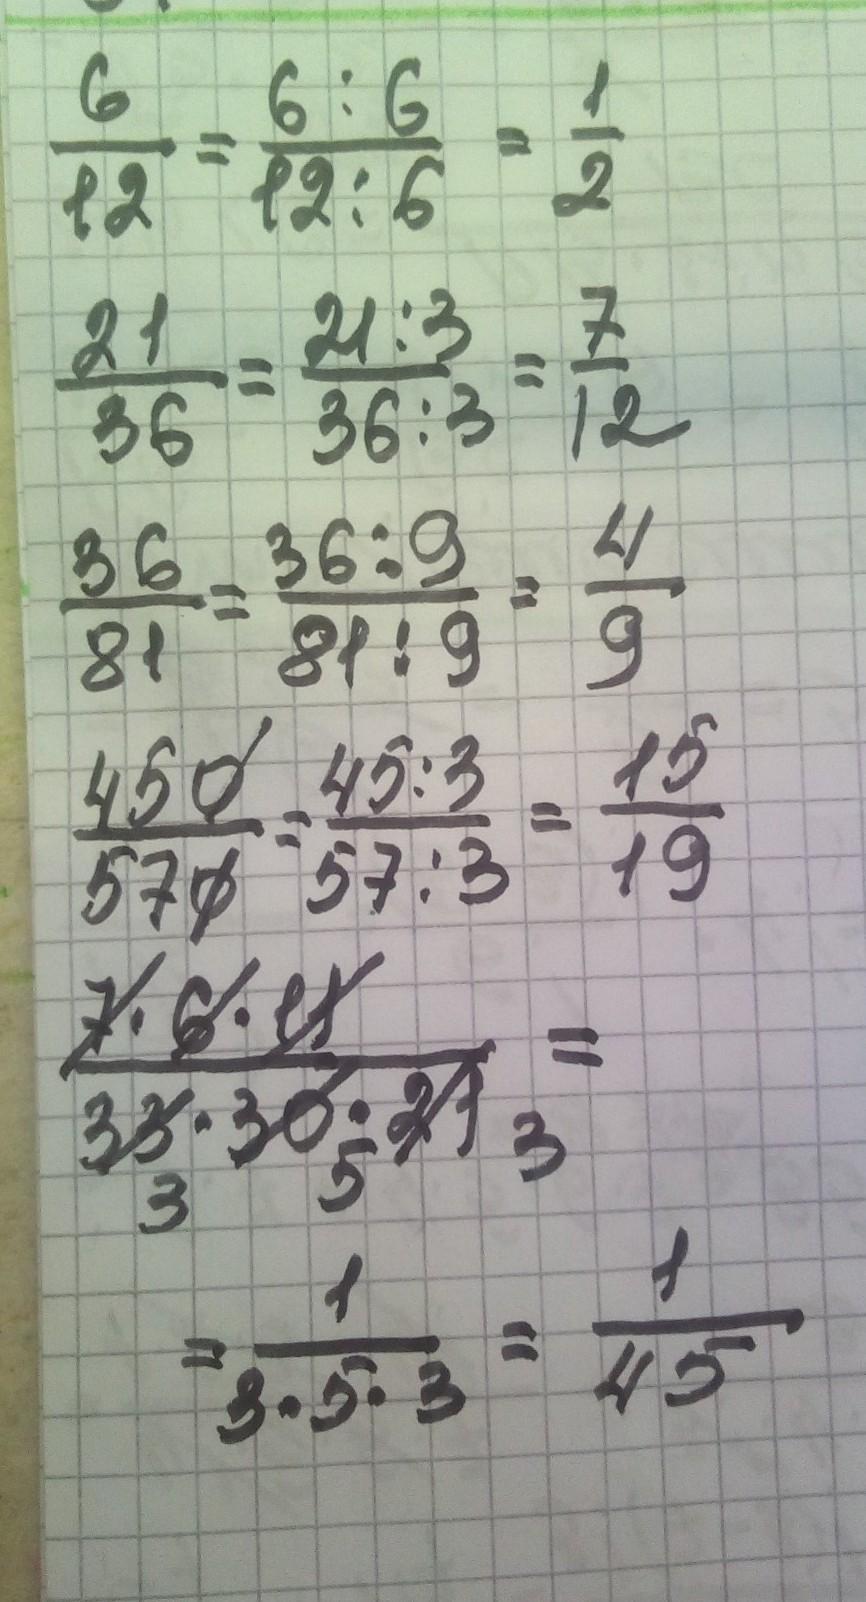 6/12 = 6:6/12:6 = 1/2
21/36 = 21:3/36:3 = 7/12
36/81 = 36:9/81:9 = 4/9
450/570 = 45:3/57:3 = 15/19
7·6·11/33·30·21 =
3 5 3
= 1/3·5·3 = 1/45